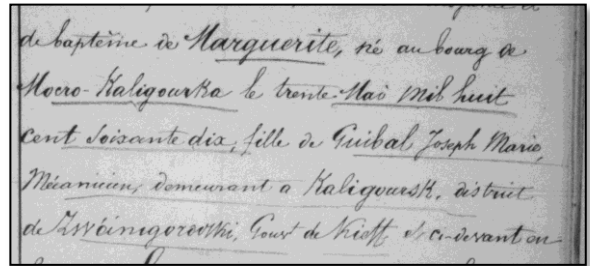 de baptême de Marguerite, né au bourg de
Mocro-Kaligourka le trente Mai mil huit
cent soixante dix, fille de Guibal Joseph Marie,
Mécanicien, demeurant a Kaligoursk, district
de Zwoinigorodski, Gouvt de Kieff et ci-devant en